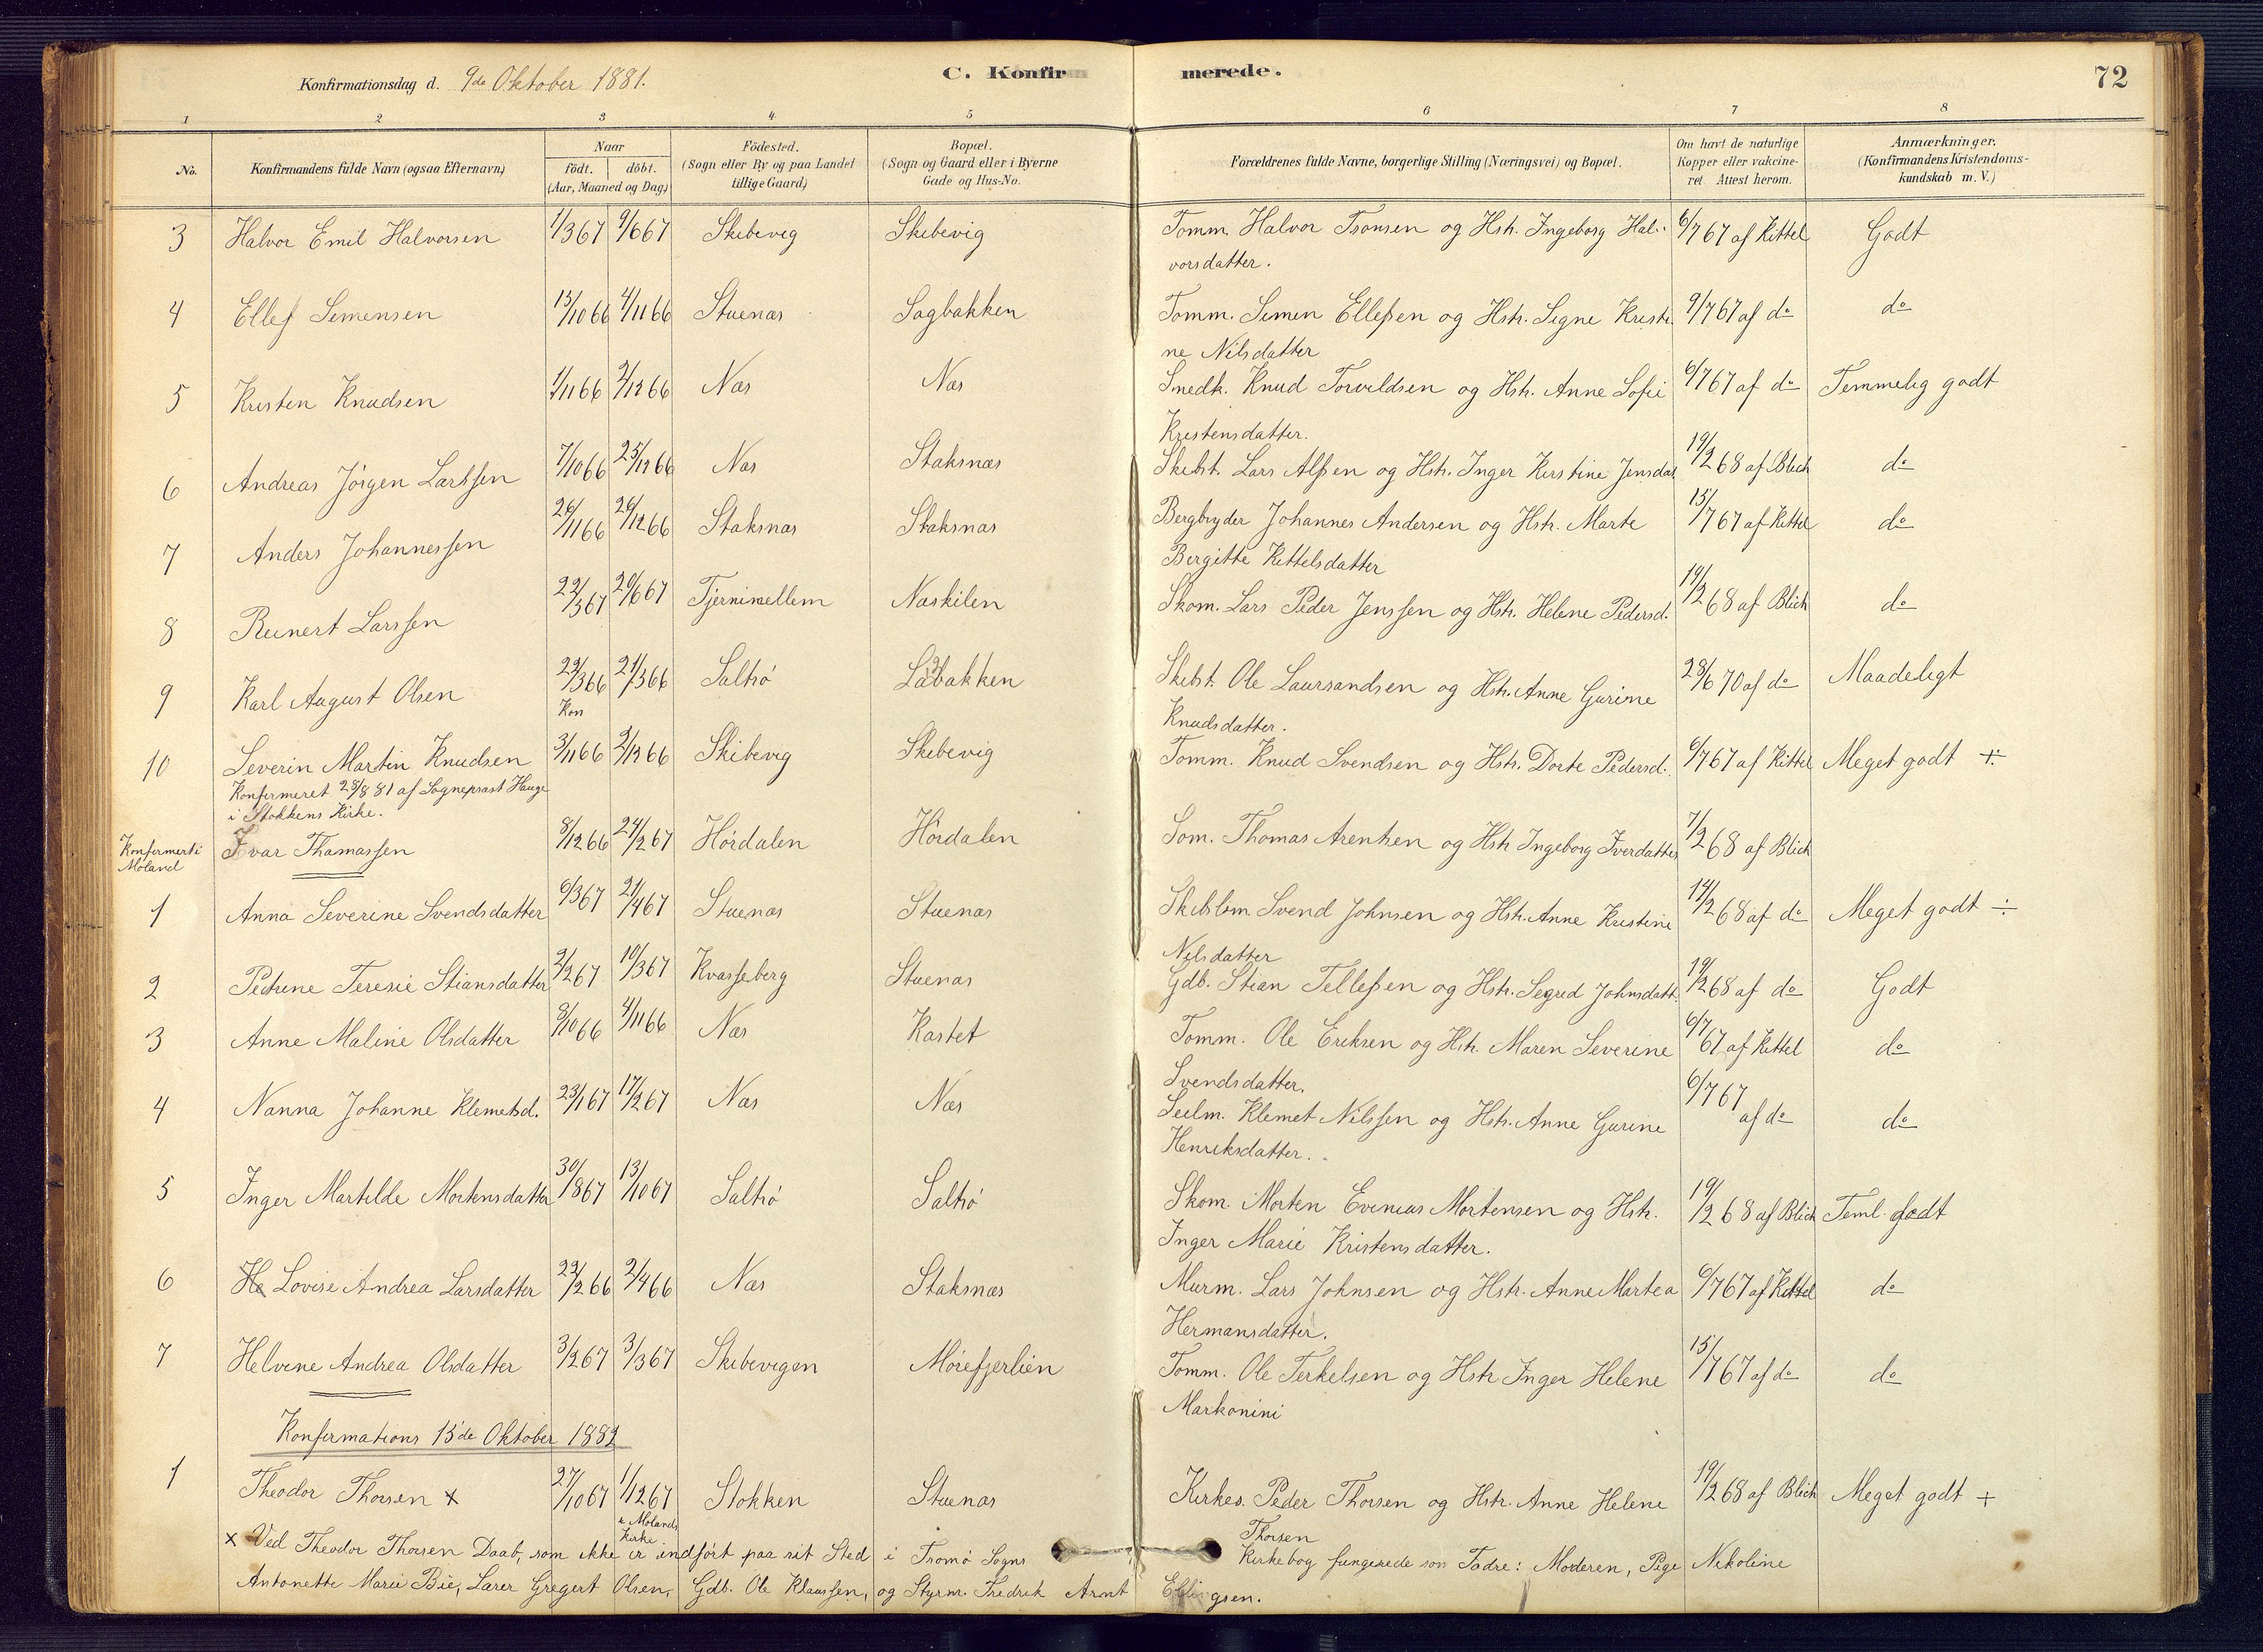 Konfirmationsdag d. 9de Oktober 1881. C. Konfirmerede. 72
1 2 3 4 5 6 7 8
No. Konfirmandens fulde Navn (ogsaa Efternavn) Naar födt. döbt. (Aar, Maaned og Dag) Födested. (Sogn eller By og paa Landet tillige Gaard) Bopæl. (Sogn og Gaard eller i Byerne Gade og Hus-No. Forældrenes fulde Navne, borgerlige Stilling (Næringsvei) og Bopæl. Om havt de naturlige Kopper eller vakcineret Attest herom. Anmærkninger. (Konfirmandens Kristendomskundskab m. V.)
3 Halvor Emil Halvorsen 1/3 67 9/6 67 Skibevig Skibevig Tomm. Halvor Tronsen og Hstr. Ingeborg Hal- 6/7 67 af Kittel Godt
vorsdatter.
4 Ellef Simensen 13/10 66 4/11 66 Stuenæs Sagbakken Tomm. Simen Ellefsen og Hstr. Signe Kristi- 9/7 67 af do do
ne Nilsdatter
5 Kristen Knudsen 1/11 66 2/12 66 Næs Næs Smedk. Knud Torvildsen og Hstr. Anne Sofie 6/7 67 af do Temmelig godt
Kristensdatter.
6 Andreas Jörgen Larssen 7/10 66 25/12 66 Næs Staksnæs Skibst. Lars Alfsen og Hstr. Inger Kirstine Jensdat. 19/2 68 af Blich do
7 Anders Johannessen 26/11 66 26/12 66 Staksnæs Staksnæs Bergbryder Johannes Andersen og Hstr. Marte 15/7 67 af Kittel do
Bergitte Kittelsdatter
8 Reinert Larssen 22/3 67 20/6 67 Tjernimellem Næskilen Skom. Lars Peder Jenssen og Hstr. Helene Pedersd. 14/2 68 af Blich do
9 Karl August Olsen 22/3 66 21/3 66 Saltrö Labakken Skibst. Ole Laursandsen og Hstr. Anne Gurine 28/6 70 af do Maadeligt
Kon
Knudsdatter.
10 Severin Martin Knudsen 3/11 66 2/12 66 Skibevig Skibevig Tomm. Knud Svendsen og Hstr. Dorte Pedersd. 6/7 67 af Kittel Meget godt ÷
Konfirmeret 28/8 81 af Sogneprast Hauge
i Stokkens Kirke.
Konfirmert i Moland Ivar Thomassen 8/12 66 24/2 67 Hördalen Hördalen Som. Thomas Arentsen og Hstr Ingeborg Iverdatter 7/2 68 af Blich
1 Anna Severine Svendsdatter 6/3 67 21/4 67 Stuenæs Stuenæs Skibstøm Svend Johnsen og Hstr. Anne Kristine 14/2 68 af do Meget godt ÷
Nilsdatter
2 Petrine Teresie Stiansdatter 2/2 67 10/3 67 Kvasseberg Stuenæs Gdb. Stian Tellefsen og Hstr. Sigrid Johnsdatt. 19/2 68 af do Godt
3 Anne Maline Olsdatter 8/10 66 4/11 66 Næs Kastet Tomm. Ole Eriksen og Hstr. Maren Severine 6/7 67 af Kittel do
Svendsdatter.
4 Nanna Johanne Klemetsd. 23/1 67 17/2 67 Næs Næs Seilm. Klemet Nilssen og Hstr. Anne Gurine 6/7 67 af do do
Henriksdatter.
5 Inger Martilde Mortensdatter 30/8 67 13/10 67 Saltrö Saltrö Skom. Morten Evenias Mortensen og Hstr. 19/2 68 af Blich Teml. godt
Inger Marie Kristensdatter.
6 He Lovise Andrea Larsdatter 22/2 66 2/4 66 Næs Staksnæs Murm. Lars Johnsen og Hstr. Anne Martea 6/7 67 af Kittel do
Hermansdatter.
7 Helvine Andrea Olsdatter 3/2 67 3/3 67 Skibevigen Mörefjerlien Tomm. Ole Terkelsen og Hstr Inger Helene 15/7 67 af do do
Markonini
Konfirmations 15de Oktober 1882
1 Theodor Thorsen x 27/10 67 1/12 67 Stokken Stuenæs Kirkes. Peder Thorsen og Hstr. Anne Helene 19/2 68 af Blich Meget godt +
i Molands Kirke
Thorsen
x Ved Theodor Thorsen Daab, som ikke er indfört paa sit Sted i Tromö Sogns Kirkebog fungerede som Fadre: Moderen, Pige Nikoline
Antonette Marie Bie, Lærer Gregert Olsen, Gdb. Ole Klaussen, og Styrm. Fredrik Arnt Ellingsen.